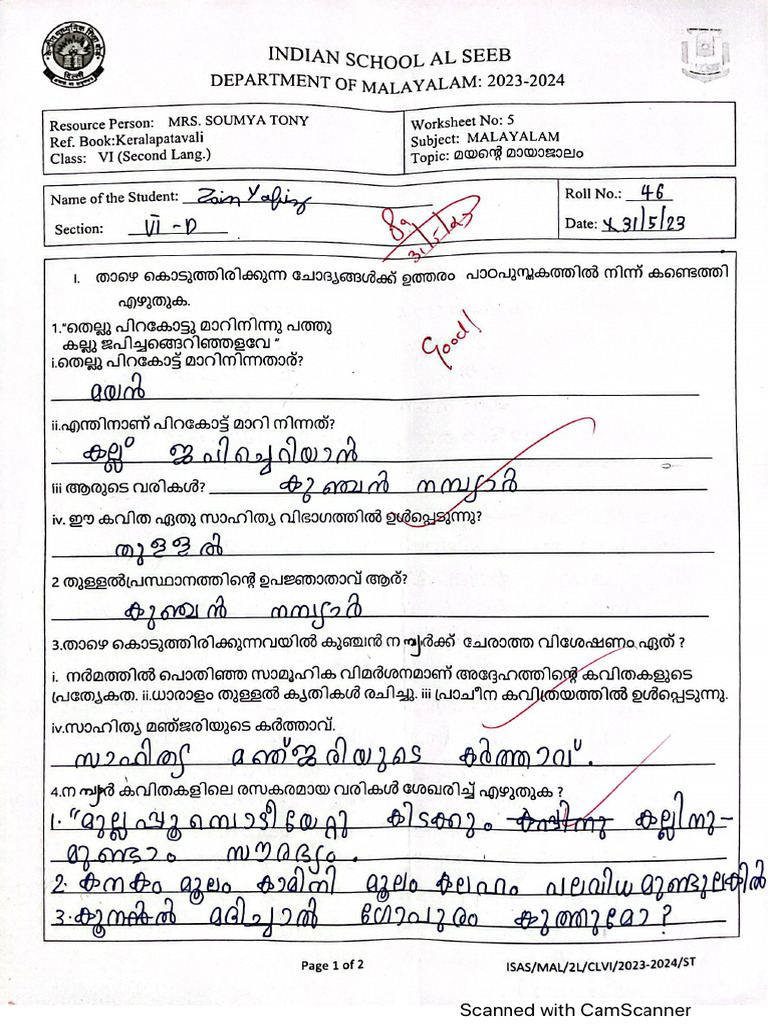 INDIAN SCHOOL AL SEEB
DEPARTMENT OF MALAYALAM: 2023-2024
Resource Person: MRS. SOUMYA TONY
Ref. Book:Keralapatavali
Class: VI (Second Lang.)
Worksheet No: 5
Subject: MALAYALAM
Topic: മയന്റെ മായാജാലം
Name of the Student: Zain
Section: VI - D
Roll No.: 46
Date: 31/5/23
31/5/23
I. താഴെ കൊടുത്തിരിക്കുന്ന ചോദ്യങ്ങൾക്ക് ഉത്തരം പാഠപുസ്തകത്തിൽ നിന്ന് കണ്ടെത്തി
എഴുതുക.
1."തെല്ലു പിറകോട്ടു മാറിനിന്നു പത്തു
കല്ലു ജപിച്ചങ്ങെറിഞ്ഞളവേ "
Good!
i.തെല്ലു പിറകോട്ട് മാറിനിന്നതാര്?
മയൻ
ii.എന്തിനാണ് പിറകോട്ട് മാറി നിന്നത്?
കല്ല് ജപിച്ചെറിയാൻ
iii ആരുടെ വരികൾ? കുഞ്ചൻ നമ്പ്യാർ
iv. ഈ കവിത ഏതു സാഹിത്യ വിഭാഗത്തിൽ ഉൾപ്പെടുന്നു?
തുളളൽ
2 തുള്ളൽപ്രസ്ഥാനത്തിന്റെ ഉപജ്ഞാതാവ് ആര്?
കുഞ്ചൻ നമ്പ്യാർ
3.താഴെ കൊടുത്തിരിക്കുന്നവയിൽ കുഞ്ചൻ നമ്പ്യാർക്ക് ചേരാത്ത വിശേഷണം ഏത് ?
i. നർമത്തിൽ പൊതിഞ്ഞ സാമൂഹിക വിമർശനമാണ് അദ്ദേഹത്തിന്റെ കവിതകളുടെ
പ്രത്യേകത. ii.ധാരാളം തുള്ളൽ കൃതികൾ രചിച്ചു. iii പ്രാചീന കവിത്രയത്തിൽ ഉൾപ്പെടുന്നു.
iv.സാഹിത്യ മഞ്ജരിയുടെ കർത്താവ്.
സാഹിത്യ മഞ്ജരിയുടെ കർത്താവ്.
4.നമ്പ്യാർ കവിതകളിലെ രസകരമായ വരികൾ ശേഖരിച്ച് എഴുതുക ?
1. "മുല്ലപ്പൂമ്പൊടിയേറ്റു കിടക്കും കല്ലിനു-
മുണ്ടാം സൗരഭ്യം.
2. കനകം മൂലം കാമിനി മൂലം കലഹം പലവിധമുണ്ടുലകിൽ
3. മദിച്ചാൽ ഗോപുരം കുത്തുമോ?
Page 1 of 2
ISAS/MAL/2L/CLVI/2023-2024/ST
Scanned with CamScanner